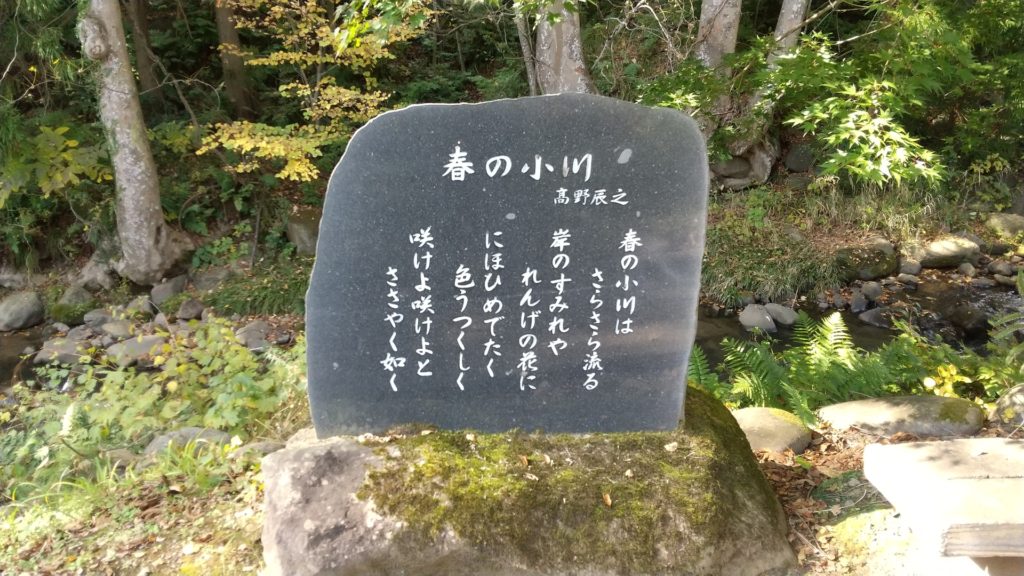 春の小川
高野辰之
春の小川は
さらさら流る
岸のすみれや
れんげの花に
にほひめでたく
色うつくしく
咲けよ咲けよと
ささやく如く